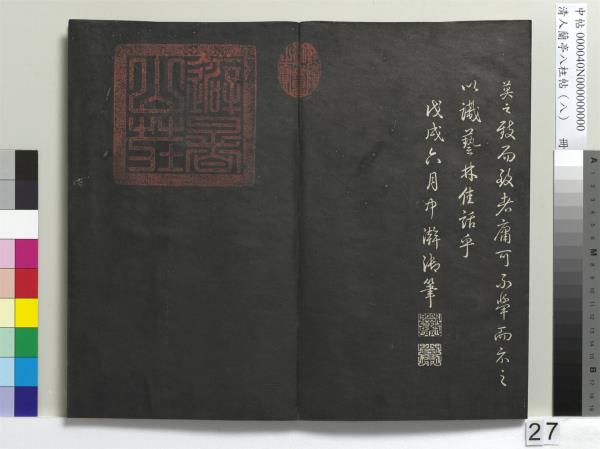 中帖 000040N000000000
清人蘭亭八柱帖（八） 冊
莫之致而致者庸可不舉而示之
以識藝林佳話乎
戊戌六月中澣御筆
避暑
山莊
27
A
M
B